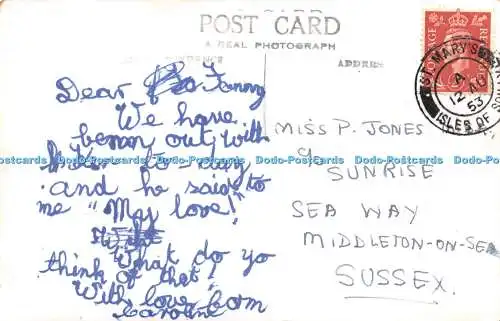 POST CARD
A REAL PHOTOGRAPH
ADDRESS
POSTAGE
REVENUE
ST. MARY'S
A
12 AU
53
ISLES OF
Dear Fanny
We have
benny out with
to-day
and he said to
me "My love!"
What do yo
think of that!
With love from
Caroline
MISS P. JONES
c/o
SUNRISE
SEA WAY
MIDDLETON-ON-SEA
SUSSEX.
Dodo-Postcards Dodo-Postcards Dodo-Postcards Dodo-Postcards Dodo-Postcards Dodo-Postcards Dodo-Postcards